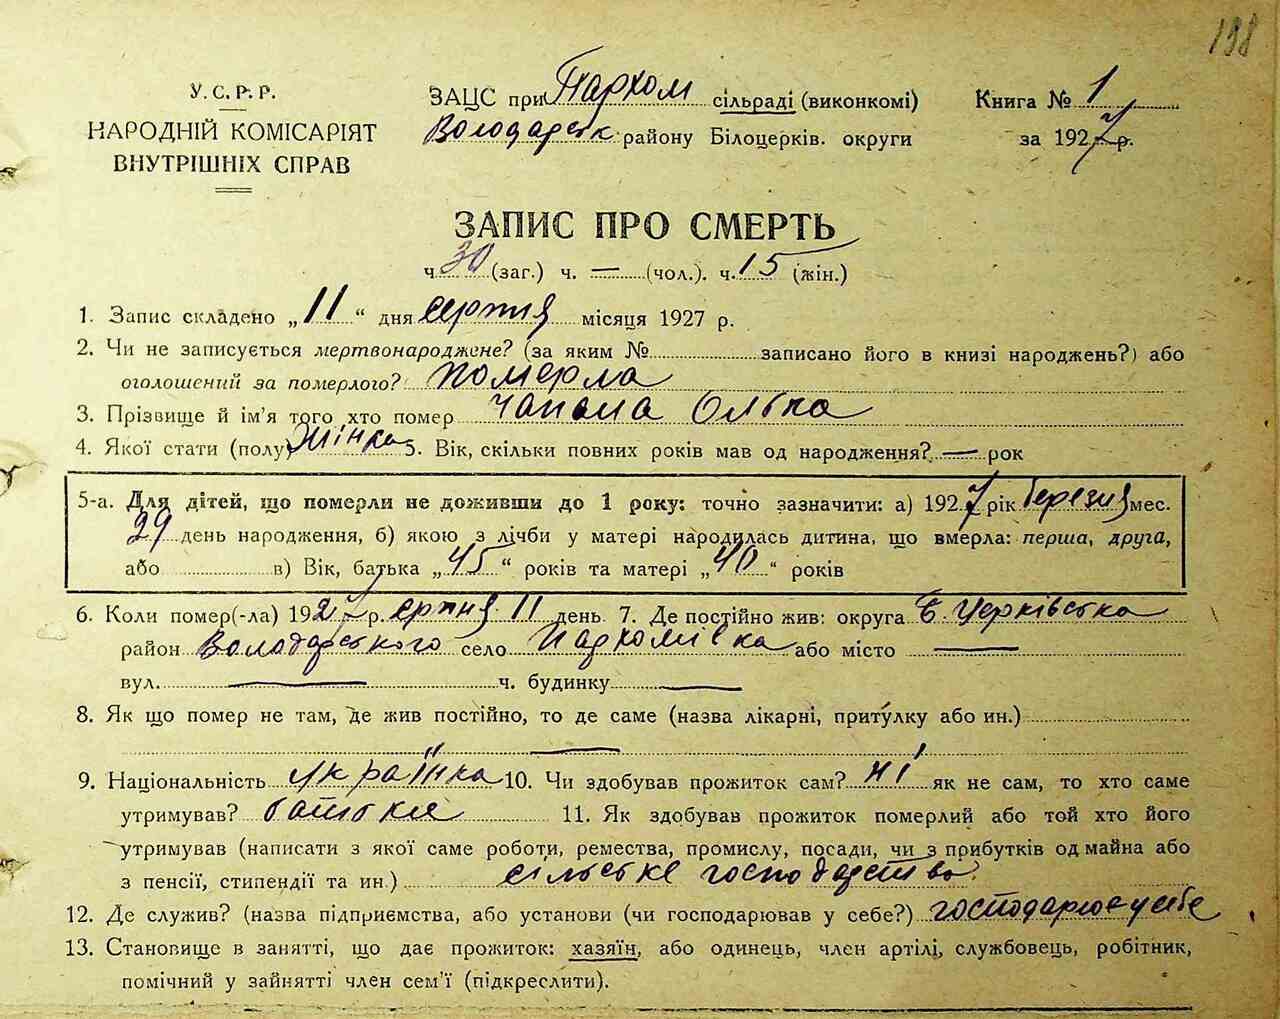 198
У.С.Р.Р.
НАРОДНІЙ КОМІСАРІЯТ
ВНУТРІШНІХ СПРАВ
ЗАЦС при Пархом сільраді (виконкомі)
Володарськ. району Білоцерків. округи
Книга № 1
за 1927 р.
ЗАПИС ПРО СМЕРТЬ
ч. 30 (заг.) ч. — (чол.). ч. 15 (жін.)
1. Запис складено „11“ дня серпня місяця 1927 р.
2. Чи не записується мертвонароджене? (за яким № записано його в книзі народжень?) або
оголошений за померлого? померла
3. Прізвище й ім'я того, хто помер Чапала Олька
4. Якої стати (полу) жінка 5. Вік, скільки повних років мав од народження? — рок
5-а. Для дітей, що померли не доживши до 1 року: точно зазначити: а) 1927 рік березня мес.
29 день народження, б) якою з лічби у матері народилась дитина, що вмерла: перша, друга,
або в) Вік, батька „45“ років та матері „40“ років
6. Коли помер(-ла) 1927 р. серпня 11 день 7. Де постійно жив: округа Б. Церківська
район Володарського село Пархомівка або місто —
вул. — ч. будинку —
8. Як що помер не там, де жив постійно, то де саме (назва лікарні, притулку або ин.)
—
9. Національність українка 10. Чи здобував прожиток сам? ні як не сам, то хто саме
утримував? батьки 11. Як здобував прожиток померлий або той хто його
утримував (написати з якої саме роботи, ремества, промислу, посади, чи з прибутків од майна або
з пенсії, стипендії та ин.) сільське господарство
12. Де служив? (назва підприємства, або установи (чи господарював у себе?) господарює у себе
13. Становище в занятті, що дає прожиток: хазяїн, або одинець, член артілі, службовець, робітник,
помічний у зайнятті член сем'ї (підкреслити).